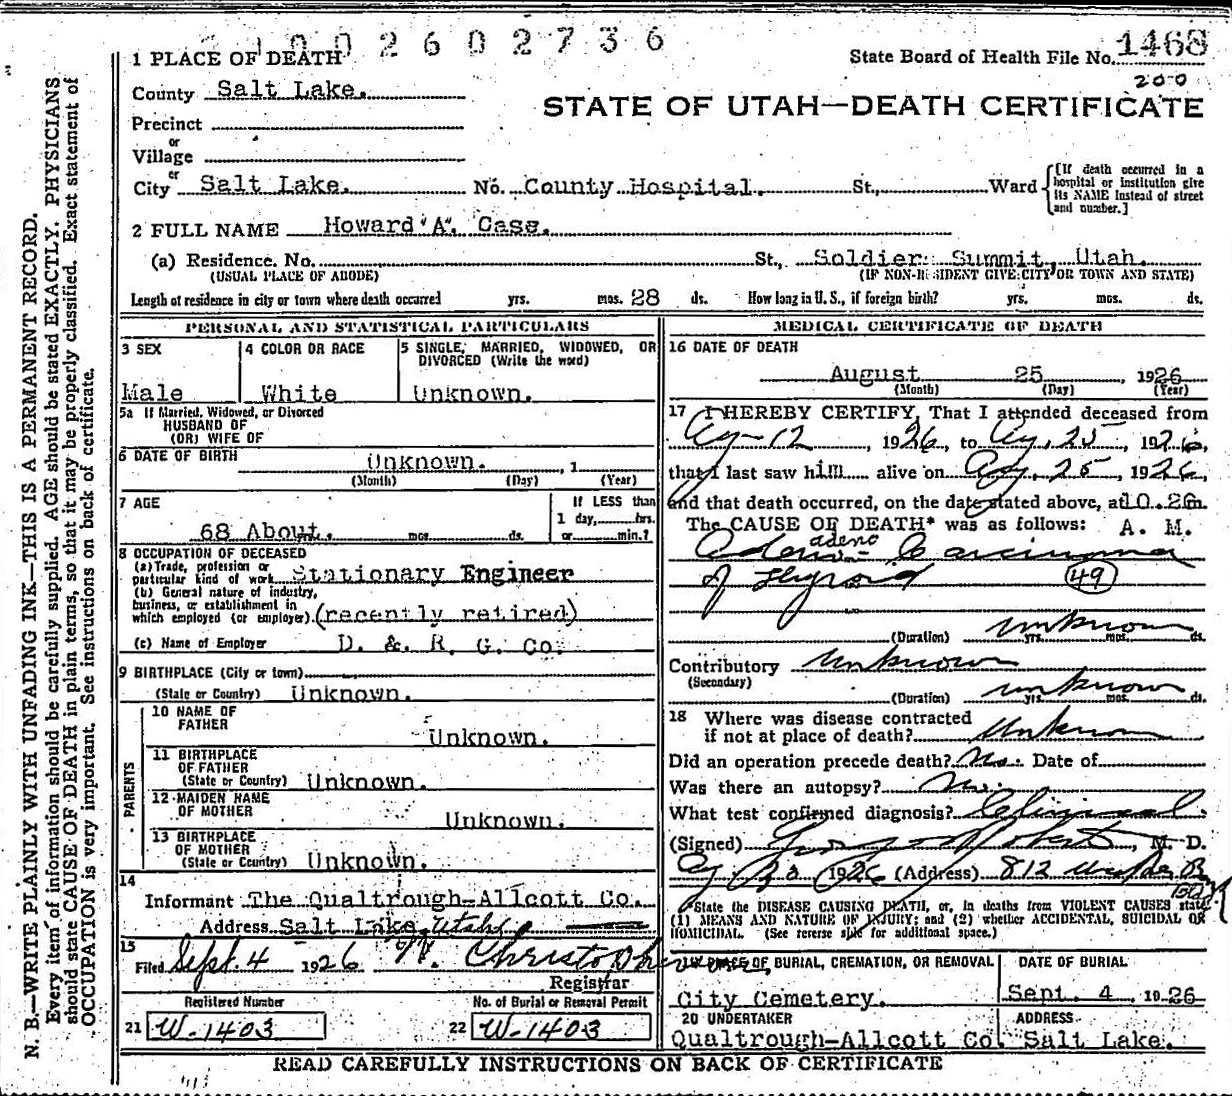 1002602736
1 PLACE OF DEATH
State Board of Health File No. 1468
200
County Salt Lake.
STATE OF UTAH—DEATH CERTIFICATE
Precinct
or
Village
or
City Salt Lake. No. County Hospital. St., Ward
[If death occurred in a hospital or institution give its NAME instead of street and number.]
2 FULL NAME Howard "A". Cass.
(a) Residence. No. St., Soldier Summit, Utah.
(USUAL PLACE OF ABODE) (IF NON-RESIDENT GIVE CITY OR TOWN AND STATE)
Length of residence in city or town where death occurred yrs. mos. 28 ds. How long in U. S., if foreign birth? yrs. mos. ds.
PERSONAL AND STATISTICAL PARTICULARS
3 SEX
Male
4 COLOR OR RACE
White
5 SINGLE, MARRIED, WIDOWED, OR
DIVORCED (Write the word)
Unknown.
5a If Married, Widowed, or Divorced
HUSBAND OF
(OR) WIFE OF
6 DATE OF BIRTH
Unknown. , 1
(Month) (Day) (Year)
7 AGE
68 About. mos. ds.
If LESS than
1 day, hrs.
or min.?
8 OCCUPATION OF DECEASED
(a) Trade, profession or
particular kind of work Stationary Engineer
(b) General nature of industry,
business, or establishment in
which employed (or employer). (recently retired)
(c) Name of Employer D. & R. G. Co.
9 BIRTHPLACE (City or town)
(State or Country) Unknown.
PARENTS
10 NAME OF
FATHER
Unknown.
11 BIRTHPLACE
OF FATHER
(State or Country) Unknown.
12 MAIDEN NAME
OF MOTHER
Unknown.
13 BIRTHPLACE
OF MOTHER
(State or Country) Unknown.
14
Informant The Qualtrough-Allcott Co.
Address Salt Lake, Utah
15
Filed Sept. 4 1926
Registrar
Registered Number
21 W-1403
No. of Burial or Removal Permit
22 W-1403
MEDICAL CERTIFICATE OF DEATH
16 DATE OF DEATH
August 25 , 1926
(Month) (Day) (Year)
17 I HEREBY CERTIFY, That I attended deceased from
Ag-12 , 1926, to Ag. 25 , 1926,
that I last saw him alive on Ag. 25 1926,
and that death occurred, on the date stated above, at 10.26 m.
The CAUSE OF DEATH* was as follows: A. M.
adeno
Adeno- Carcinoma
of Thyroid 49
(Duration) unknown yrs. mos. ds.
Contributory unknown
(Secondary)
(Duration) unknown yrs. mos. ds.
18 Where was disease contracted
if not at place of death? unknown
Did an operation precede death? No. Date of
Was there an autopsy? No.
What test confirmed diagnosis? Clinical
(Signed) , M. D.
Ag 30 1926 (Address) 812
*State the DISEASE CAUSING DEATH, or, in deaths from VIOLENT CAUSES state
(1) MEANS AND NATURE OF INJURY; and (2) whether ACCIDENTAL, SUICIDAL OR
HOMICIDAL. (See reverse side for additional space.)
19 PLACE OF BURIAL, CREMATION, OR REMOVAL
City Cemetery.
DATE OF BURIAL
Sept. 4 , 1926
20 UNDERTAKER
Qualtrough-Allcott Co.
ADDRESS
Salt Lake.
READ CAREFULLY INSTRUCTIONS ON BACK OF CERTIFICATE
N. B.—WRITE PLAINLY WITH UNFADING INK—THIS IS A PERMANENT RECORD.
Every item of information should be carefully supplied. AGE should be stated EXACTLY. PHYSICIANS
should state CAUSE OF DEATH in plain terms, so that it may be properly classified. Exact statement of
OCCUPATION is very important. See instructions on back of certificate.